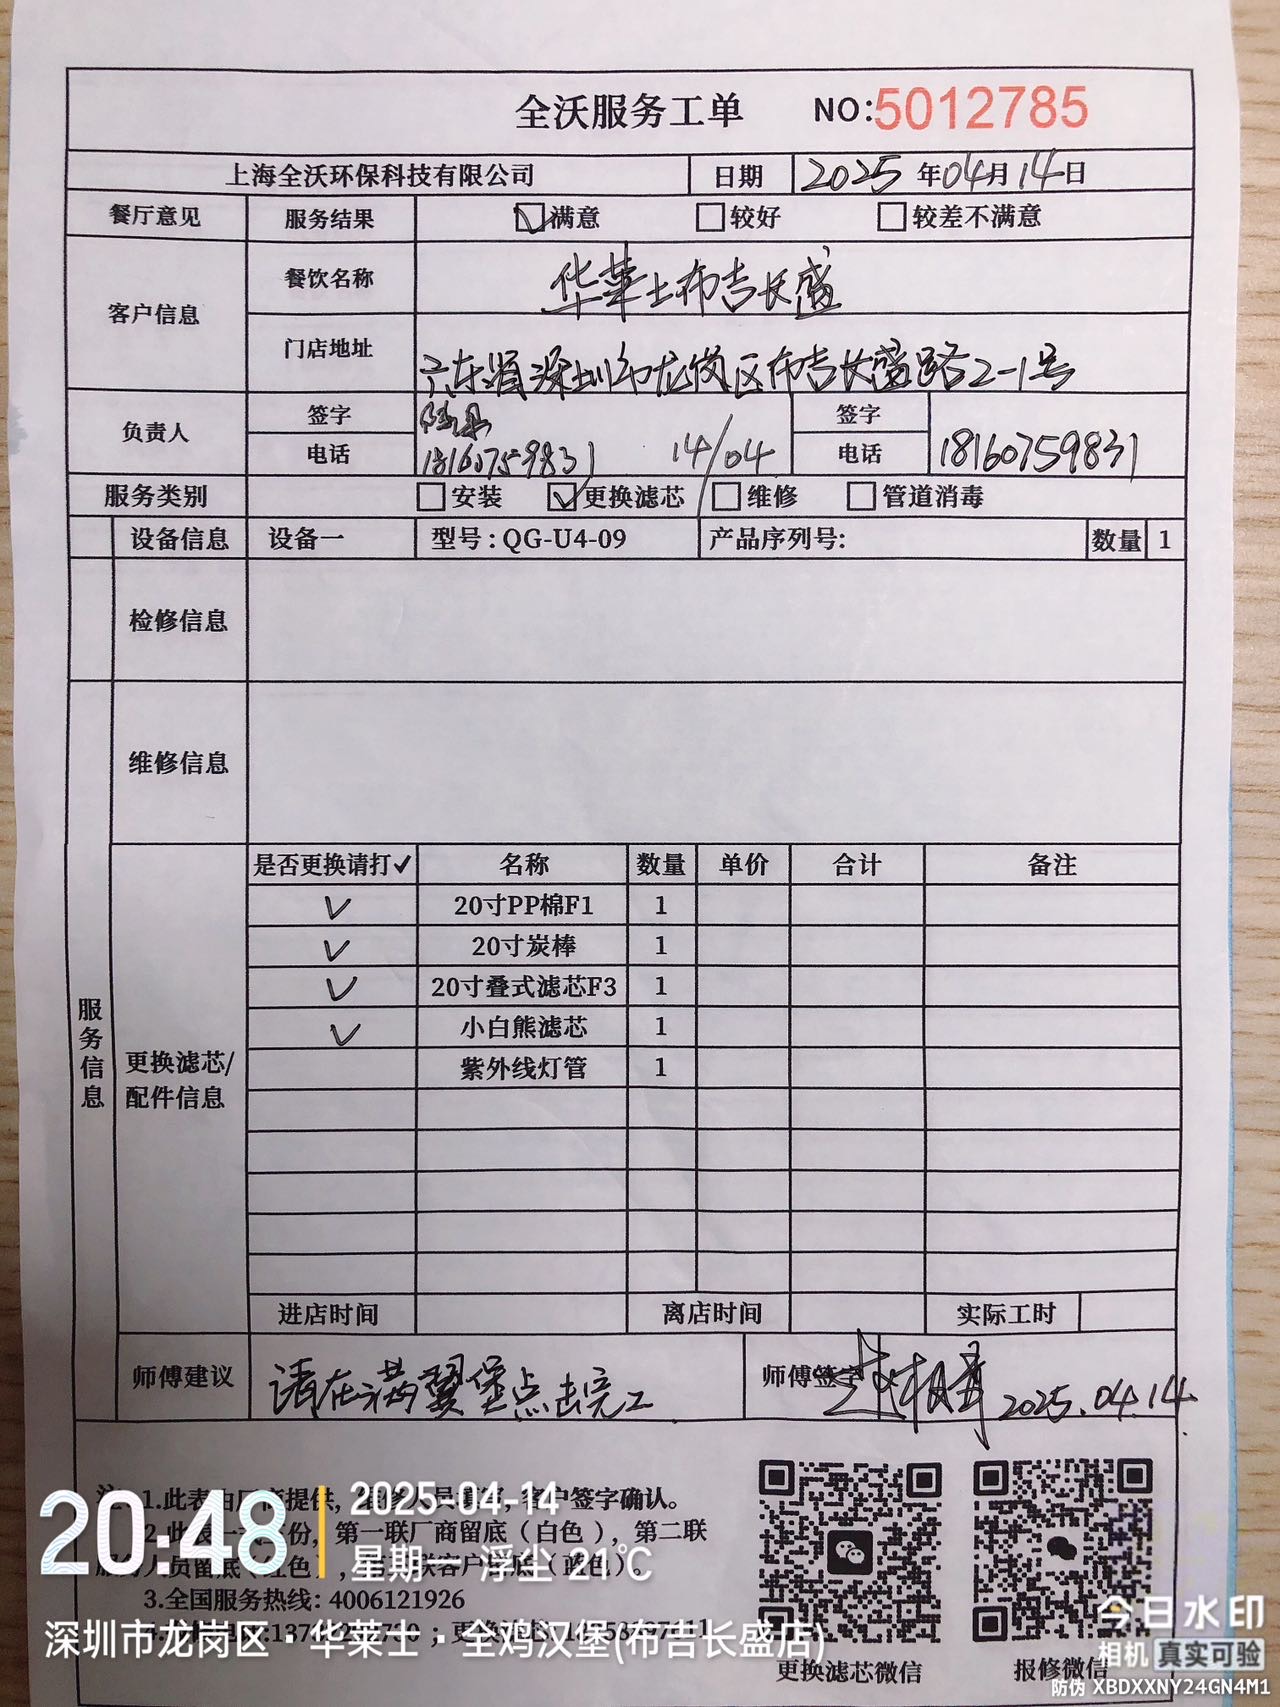 全沃服务工单 NO:5012785
上海全沃环保科技有限公司 日期 2025年04月14日
餐厅意见 服务结果 ☑满意 □较好 □较差不满意
客户信息 餐饮名称 华莱士布吉长盛
门店地址 广东省深圳市龙岗区布吉长盛路2-1号
负责人 签字 签字
电话 18160759831 14/04 电话 18160759831
服务类别 □安装 ☑更换滤芯 □维修 □管道消毒
设备信息 设备一 型号:QG-U4-09 产品序列号: 数量 1
检修信息
维修信息
服务信息
更换滤芯/
配件信息
是否更换请打✓ 名称 数量 单价 合计 备注
✓ 20寸PP棉F1 1
✓ 20寸炭棒 1
✓ 20寸叠式滤芯F3 1
✓ 小白熊滤芯 1
紫外线灯管 1
进店时间 离店时间 实际工时
师傅建议 请在满翼堡点击完工 师傅签字 2025.04.14.
注:1.此表由厂商提供, 客户签字确认。
2.此表一式三份, 第一联厂商留底(白色), 第二联
留底(红色), 客户留底(蓝色)。
3.全国服务热线: 4006121926
更换滤芯微信 报修微信
20:48
2025-04-14
星期一 浮尘 21℃
深圳市龙岗区·华莱士·全鸡汉堡(布吉长盛店)
今日水印
相机 真实可验
防伪 XBDXXNY24GN4M1